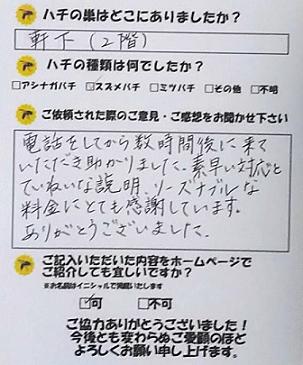 ハチの巣はどこにありましたか？
軒下（2階）
ハチの種類は何でしたか？
□アシナガバチ ☑スズメバチ □ミツバチ □その他 □不明
ご依頼された際のご意見・ご感想をお聞かせ下さい
電話をしてから数時間後に来て
いただき助かりました。素早い対応と
ていねいな説明、リーズナブルな
料金にとても感謝しています。
ありがとうございました。
ご記入いただいた内容をホームページで
ご紹介しても宜しいですか？
※お名前はイニシャルで掲載いたします
☑可 □不可
ご協力ありがとうございました！
今後とも変わらぬご愛顧のほど
よろしくお願い申し上げます。